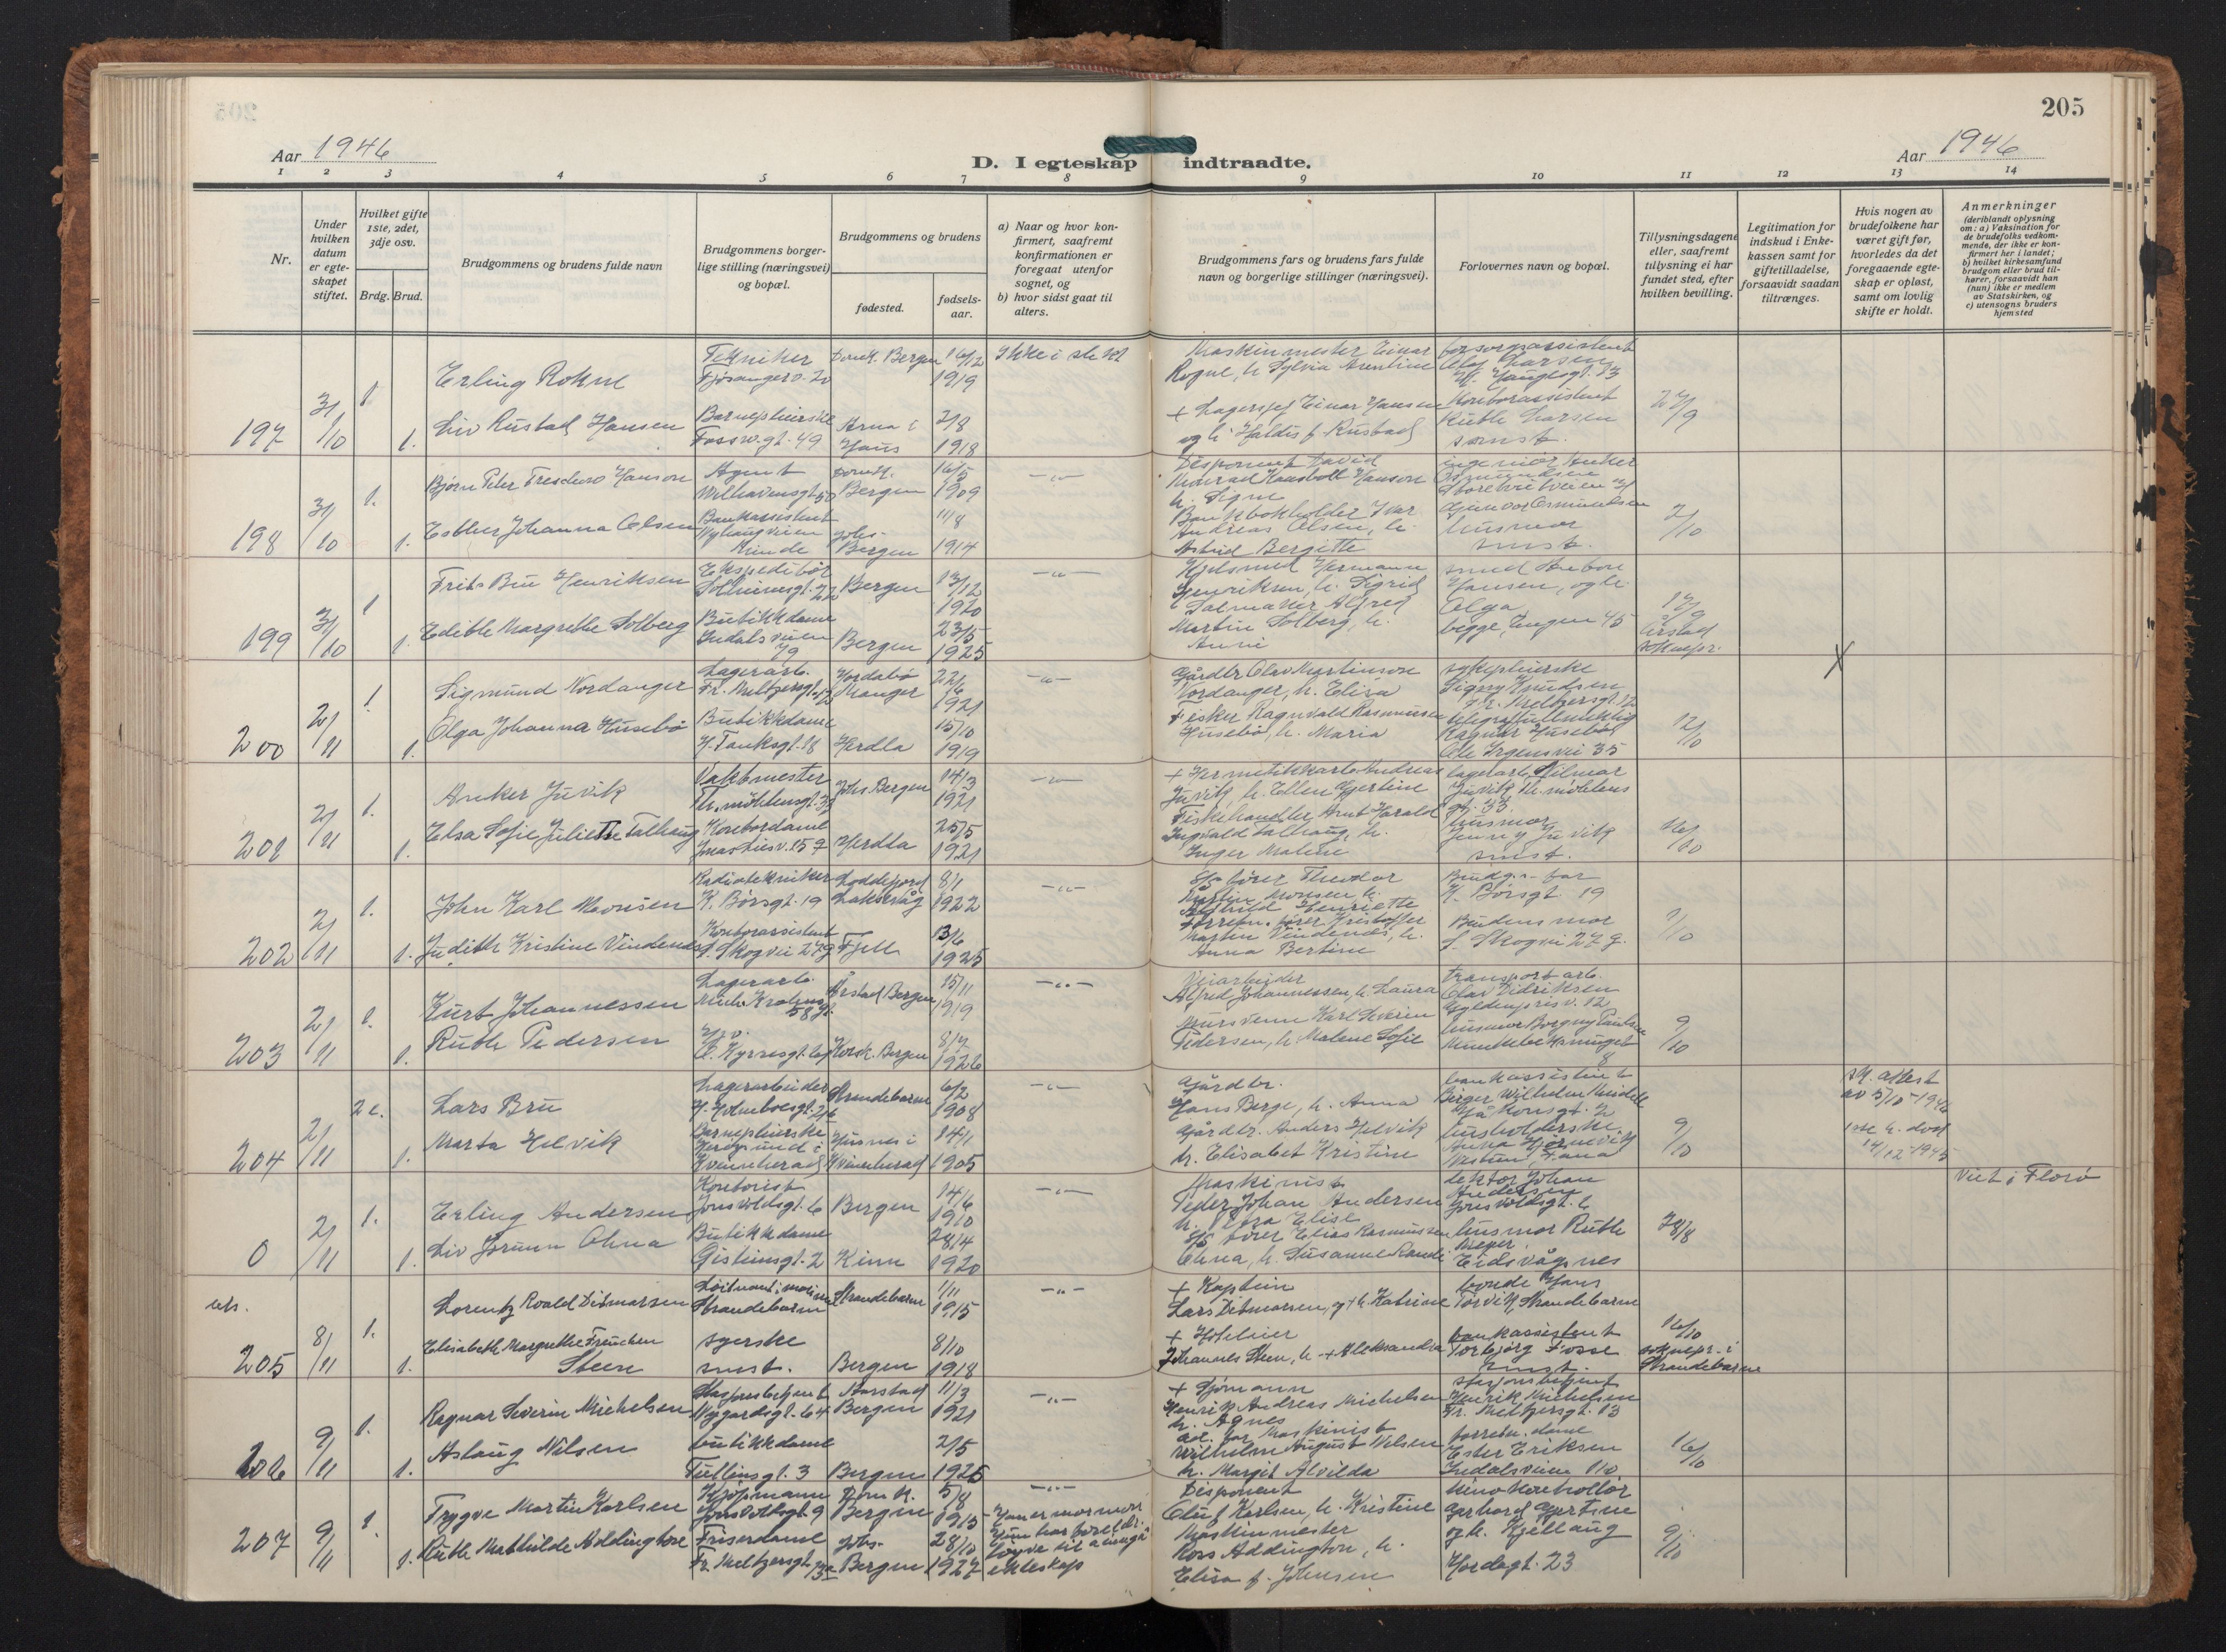 205
Aar 1946
D. I egteskap indtraadte.
Aar 1946
1 2 3 4 5 6 7 8 9 10 11 12 13 14
Nr.
Under hvilken datum er egteskapet stiftet.
Hvilket gifte 1ste, 2det, 3dje osv.
Brdg. Brud.
Brudgommens og brudens fulde navn
Brudgommens borgerlige stilling (næringsvei) og bopæl.
Brudgommens og brudens
fødested.
fødselsaar.
a) Naar og hvor konfirmert, saafremt konfirmationen er foregaat utenfor sognet, og
b) hvor sidst gaat til alters.
Brudgommens fars og brudens fars fulde navn og borgerlige stillinger (næringsvei).
Forlovernes navn og bopæl.
Tillysningsdagene eller, saafremt tillysning ei har fundet sted, efter hvilken bevilling.
Legitimation for indskud i Enkekassen samt for giftetilladelse, forsaavidt saadan tiltrænges.
Hvis nogen av brudefolkene har været gift før, hvorledes da det foregaaende egteskap er opløst, samt om lovlig skifte er holdt.
Anmerkninger (deriblandt oplysning om: a) Vaksination for de brudefolks vedkommende, der ikke er konfirmert her i landet; b) hvilket kirkesamfund brudgom eller brud tilhører, forsaavidt han (hun) ikke er medlem av Statskirken, og c) utensogns bruders hjemsted
197 31/10 1. 1.
Erling Rokne
Tekniker
Fjøsangerv. 20
Domk. Bergen 16/12 1919
Ikke i slekt
Maskinmester Einar
Rogne, h. Sylvia Arentine
forsorgsassistent
Olaf Larsen
Liv Rustad Hansen
Barnepleierske
Fossw.gt. 49
Arna i Haus
2/8 1918
+ Lagersjef Einar Hansen
og h. Haldis f. Rustad
Kontorassistent
Ruth Larsen
samst.
27/9
198 31/10 1. 1.
Bjørn Peter Treschow Hanson
Agent
Domk. Bergen
16/5 1909
Disponent David
Konrad Hansson
h. Signe
ingeniør Anker
Osmundsen
Esther Johanna Olsen
Bankassistent
Nyhaugveien
Minde
Johs. Bergen
11/8 1914
Bankbokholder Ivar
Andreas Olsen, h.
Astrid Bergitte
Gunvor Osmundsen
husmor
samst.
2/10
199 31/10 1 1.
Frits Bru Henriksen
Ekspeditør
Solheimsgt. 22
Bergen
13/12 1920
Hjelsmed Hermann
Henriksen, h. Sigrid
smed Anton
Hansen, og h.
Olga
begge, Engen 45
Edith Margrethe Solberg
Butikkdame
Indalsveien 79
Bergen
23/5 1925
Salmaker Alfred
Martin Solberg, h.
Anni
17/9
Årstad
soknepr.
X
200 2/11 1. 1.
Sigmund Nordanger
Lagerarb.
Fr. Meltzersgt. 12
Hordabø
Manger
22/6 1921
Gårdbr Olav Martinson
Nordanger, h. Elisa
sykepleierske
Signy Knudsen
Fr. Meltzersgt. 12
Olga Johanna Husebø
Butikkdame
H. Tanksgt. 18
Herdla
15/10 1919
Fisker Ragnvald Rasmussen
Husebø, h. Maria
Ragnar Husebø
Ole Irgensvei 35
12/10
201 2/11 1. 1.
Anker Juvik
Vaktmester
Th. møhlensgt. 33
Johs Bergen
14/3 1921
+ Hermetikkarb. Andreas
Juvik, h. Ellen Hjertine
lagerarb. Hilmar
Juvik, th. møhlens
gt. 33.
Elsa Sofie Juliette Talhaug
Kontordame
Jonas Liesv. 15 g
Herdla
25/5 1921
Fiskehandler Arnt Harald
Ingvald Talhaug, h.
Inger Malene
husmor
Jenny Juvik
samst.
16/10
202 2/11 1. 1.
John Karl Monsen
Radiotekniker
K. Børsgt. 19
Loddefjord
Laksevåg
8/1 1922
S/s fører Theodor
Martin Monsen h.
Henriette
Brudg.s far
K. Børsgt. 19
Judith Kristine Vindenes
Kontorassistent
s. Skogvei 27 g
Fjell
13/6 1925
Forretn. fører Kristoffer
Morten Vindenæs, h.
Anna Bertine
Brudens mor
s. Skogvei 27 g.
9/10
203 2/11 1. 1.
Kurt Johannessen
Lagerarb.
Årstad Bergen
15/11 1919
Veiarbeider
Alfred Johannessen, h. Laura
transportarb.
Olav Didriksen
Gyldenprisv. 12
Ruth Pedersen
Hjv.
O. Kyrresgt. 6
Korsk. Bergen
8/7 1926
Mursvenn Karl Severin
Pedersen, h. Malene Sofie
husmor Borgny Paulsen
8
9/10
204 2/11 2 e. 1.
Lars Bru
Lagerarbeider
H. Holmboesgt. 26
Strandebarm
6/2 1908
Gårdbr.
Hans Berge, h. Anna
bankassistent
Birger Wilhelm
Håkonsgt. 2
sk. attest
av 5/10-1946
1ste h. død
14/12-1945
Marta Helvik
Barnepleierske
Herøysund i
Kvinnherad
Husnes i
Kvinnherad
14/11 1905
Gårdbr. Anders Helvik
h. Elisabet Kristine
husholderske
Anna Hjørnevik
Nestun, Fana
9/10
0 2/11 1. 1.
Erling Andersen
Kontorist
Jons voldsgt. 6
Bergen
14/6 1910
Maskinist
Peder Johan Andersen
h. Petra Elise
lektor Johan
Andersen
Jonsvoldsgt. 6
Viet i Florø
Liv Jorunn Ohna
Butikkdame
Gistemsgt. 2
Kinn
28/4 1920
S/S fører Elias Rasmussen
Ohna, h. Susanne Randi
husmor Ruth
Meyer
Eidsvågnes
28/8
uts.
205 8/11 1. 1.
Lorentz Roald Ditmarsen
Løitnant i marinen
Strandebarm
Strandebarm
1/11 1915
+ Kaptein
Lars Ditmarsen, og + h. Katrine
bonde Hans
Tørvik, Strandebarm
Elisabeth Margrethe Freuchen
Steen
syerske
smst.
Bergen
8/10 1918
+ Hoteleier
Johannes Steen, h. + Aleksandra
bankassistent
Torbjørg Fosse
smst.
16/10
soknepr. i
Strandebarm
206 9/11 1. 1.
Ragnar Severin Michelsen
Nygårdsgt. 64
Årstad
Bergen
11/3 1921
+ Sjømann
Henrik Andreas Michelsen
h. Agnes
stasjonsbetjent
Henrik Michelsen
Fr. Meltzersgt. 13
Aslaug Nilsen
butikkdame
Tullinsgt. 3
Bergen
2/5 1925
ad. far Maskinist
Wilhelm August Nilsen
h. Margit Alvilda
forretn. dame
Ester Eriksen
Indalsveien 110
16/10
207 9/11 1. 1.
Trygve Martin Karlsen
Kjøpmann
Jonsvoldsgt. 9
Dom k.
Bergen
5/8 1915
Han er mormon
Hun har foreldr.
løyve til å inngå
ekteskap
Disponent
Oluf Karlsen, h. Kristine
Kinokontrollør
Gerhard Gjertsen
og h. Kjellaug
Hordagt. 23
Ruth Mathilde Addington
Friserdame
Fr. Meltzersgt. 13a
Johs.
Bergen
28/10 1927
Maskinmester
Ross Addington, h.
Elisa f. Johnsen
9/10